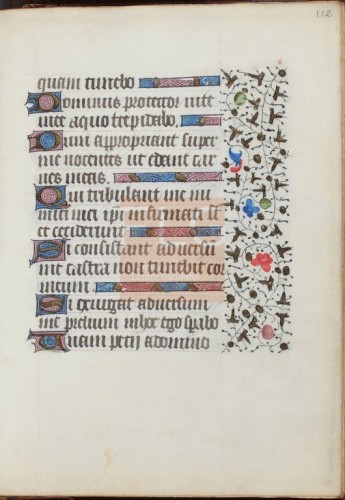 112
quam timebo
Dominus protector vite
mee a quo trepidabo
Dum appropriant super
me nocentes ut edant car
nes meas.
Qui tribulant me ini
mici mei ipi infirmati st
et ceciderunt
Si consistant adversu
me castra non timebit cor
meum
Si exurgat adversum
me prelium in hoc ego spabo
Unam petii a domino